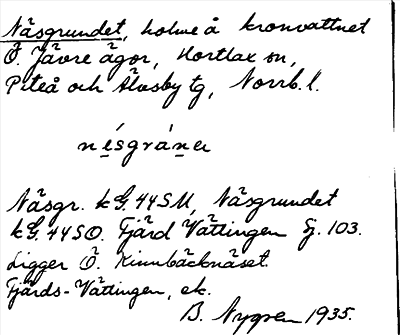 Näsgrundet, holme å kronvattnet
Ö. Jävre ägor, Hortlax sn,
Piteå och Älvsby tg, Norrb. l.
Näsgr. kG. 44SU, Näsgrundet
kG. 44SO. Fjärd Vättingen Sj. 103.
Ligger Ö. Kinnbäcknäset.
Fjärds-Vättingen, ek.
B. Nygren 1935.